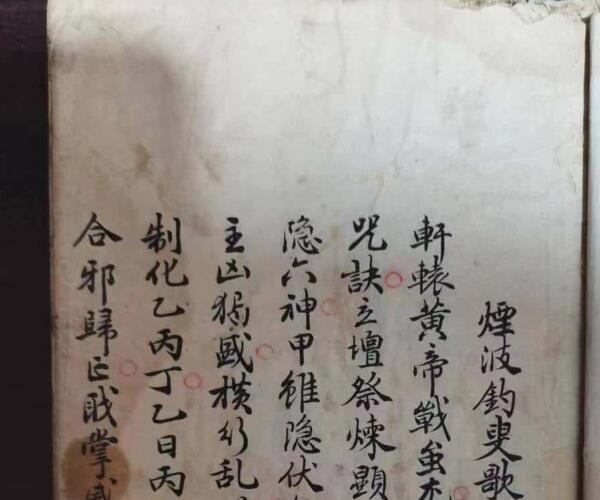 煙波釣叟歌
軒轅黃帝戰蚩
咒訣立壇祭煉顯
隐六神甲雖隐伏
主凶猖盛橫行乱
制化乙丙丁乙日丙
合邪歸正職掌